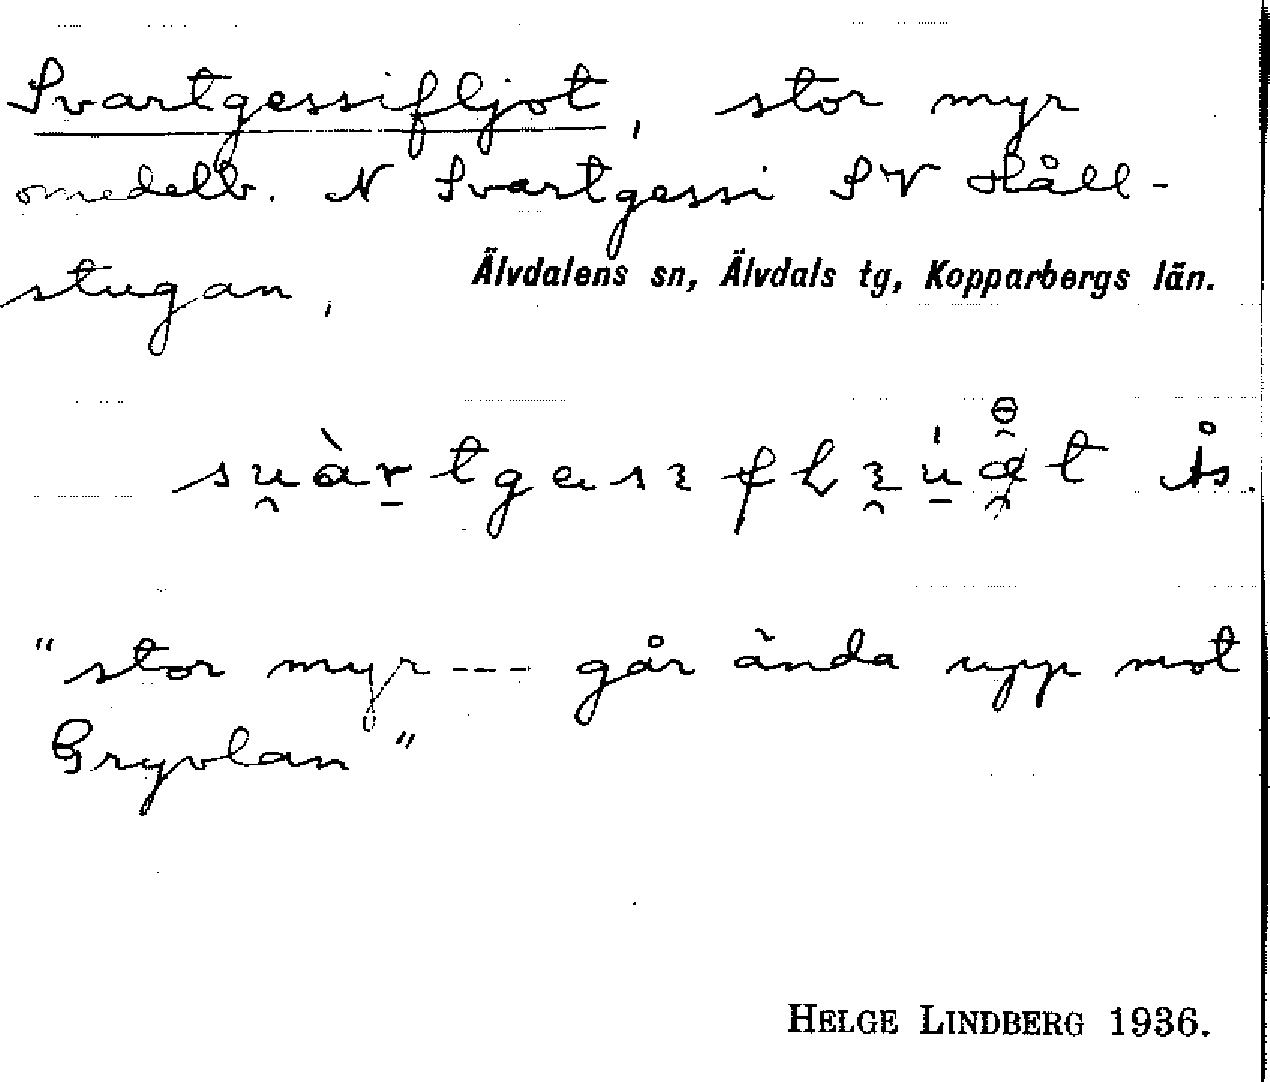 Svartgessifljot, stor myr
omedelb. N Svartgessi SV Håll-
stugan,
Älvdalens sn, Älvdals tg, Kopparbergs län.
Ås.
"stor myr --- går ända upp mot
Gryvlan"
HELGE LINDBERG 1936.